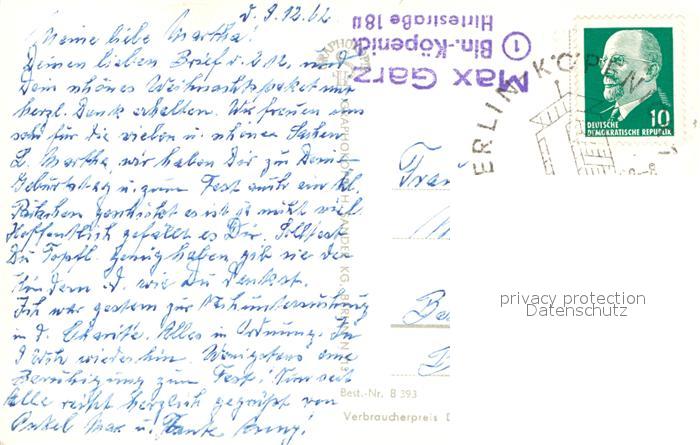 d. 9.12.62
Meine liebe Martha!
Deinen lieben Brief v. 2.12. und
Dein schönes Weihnachtspaket mit
herzl. Dank erhalten. Wir freuen uns
sehr für die vielen u. schönen Sachen
L. Martha, wir haben Dir zu Deinem
Geburtstag u. zum Fest auch ein kl.
Päckchen geschickt es ist ja nicht viel
Hoffentlich gefällt es Dir. Solltest
Du Topfl. genug haben, gib sie den
Kindern. d. wie Du denkst.
Ich war gestern zur
in d. Charité. Alles in Ordnung. In
wieder hin. Wenigstens eine
Beruhigung zum Fest! Nun seit
alle recht herzlich gegrüßt von
Onkel Max u. Tante Anny!
Max Garz
① Bln.-Köpenick
Hirtestraße 18
BERLIN KÖPENICK
10
DEUTSCHE
DEMOKRATISCHE REPUBLIK
Frau
privacy protection
Datenschutz
Best.-Nr. B 393
Verbraucherpreis